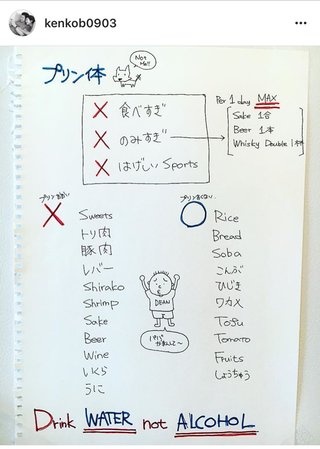 kenkob0903
プリン体
Not Me!!
× 食べすぎ
× のみすぎ
× はげしい Sports
Per 1 day MAX
Sake 1合
Beer 1本
Whisky Double 1杯
プリンがおおい
× Sweets
トリ肉
豚肉
レバー
Shirako
Shrimp
Sake
Beer
Wine
いくら
うに
プリンすくない
○ Rice
Bread
Soba
こんぶ
ひじき
ワカメ
Tofu
Tomato
Fruits
しょうちゅう
DEAN
パパ
がまんして〜
Drink WATER not ALCOHOL